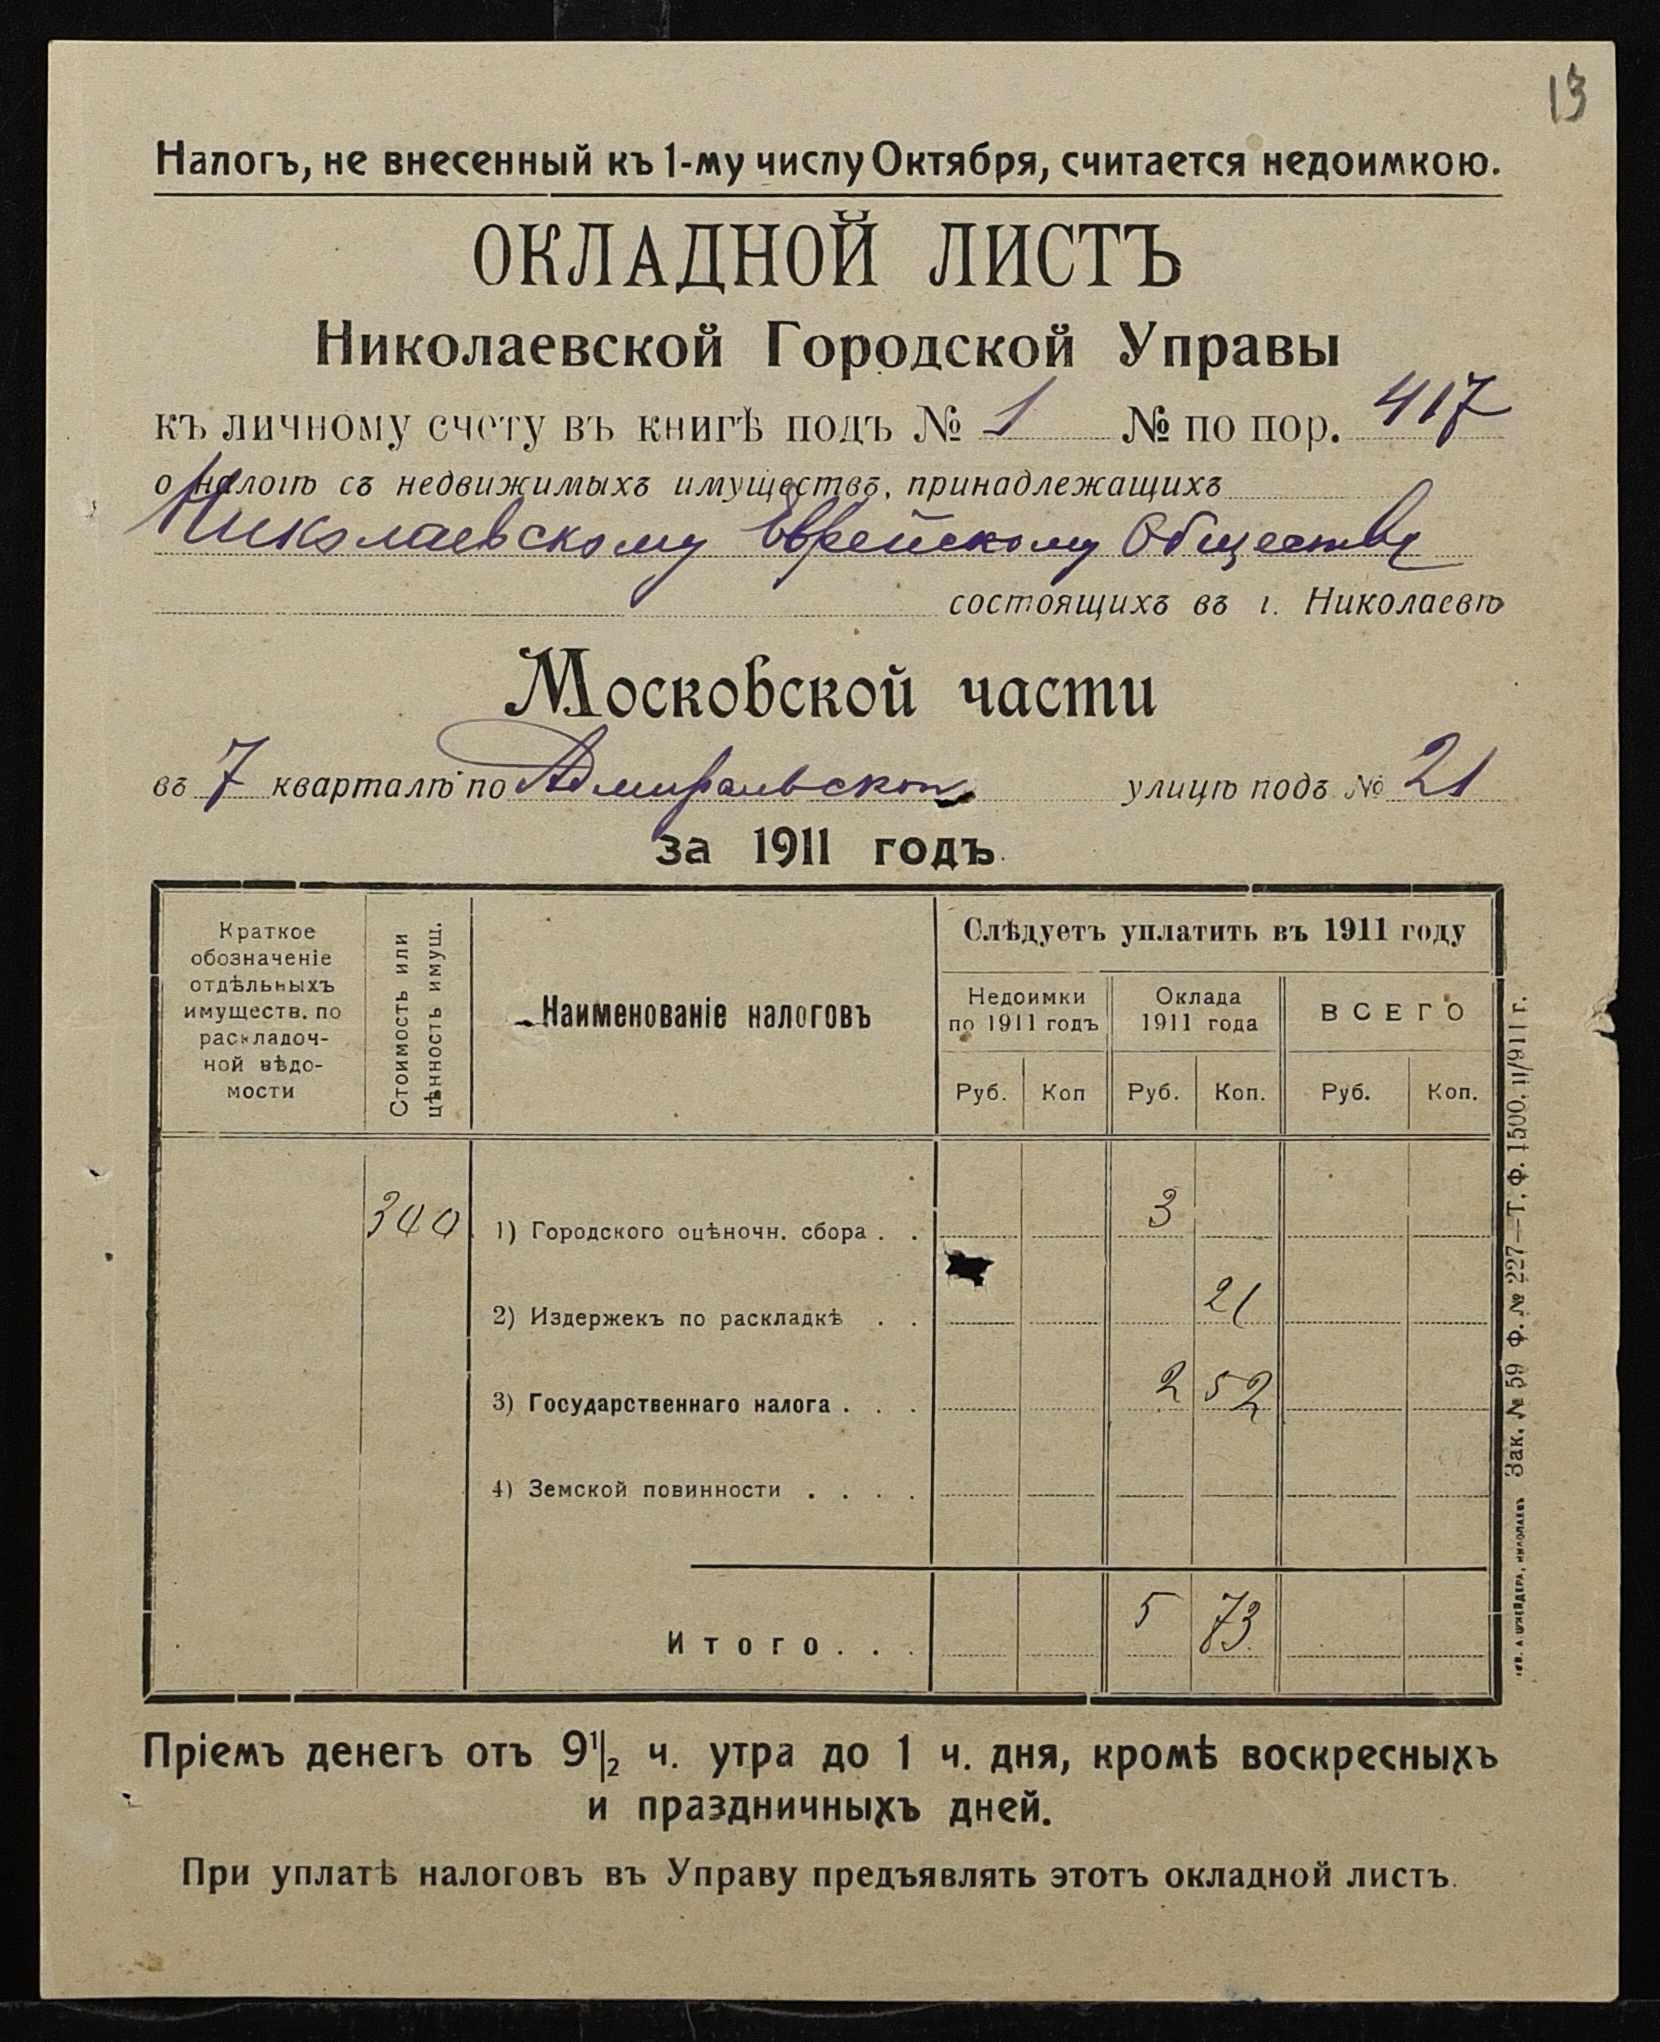 13
Налогъ, не внесенный къ 1-му числу Октября, считается недоимкою.
ОКЛАДНОЙ ЛИСТЪ
Николаевской Городской Управы
къ личному счету въ книгѣ подъ № 1 № по пор. 417
о налогѣ съ недвижимыхъ имуществъ, принадлежащихъ
Николаевскому Еврейскому Обществу
состоящихъ въ г. Николаевѣ
Московской части
въ 7 кварталѣ по Адмиральской улицѣ подъ № 21
за 1911 годъ.
Краткое
обозначеніе
отдѣльныхъ
имуществ. по
раскладоч-
ной вѣдо-
мости
Стоимость или
цѣнность имущ.
Наименованіе налоговъ
Слѣдуетъ уплатить въ 1911 году
Недоимки
по 1911 годъ
Оклада
1911 года
ВСЕГО
Руб. Коп Руб. Коп. Руб. Коп.
300 1) Городского оцѣночн. сбора . . 3
2) Издержекъ по раскладкѣ . . 21
3) Государственнаго налога . . . 2 52
4) Земской повинности . . . .
Итого. . . 5 73
Зак. № 59 Ф. № 227—Т. Ф. 1500. 11/911 г.
А. ШНЕЙДЕРА, НИКОЛАЕВЪ
Пріемъ денегъ отъ 9½ ч. утра до 1 ч. дня, кромѣ воскресныхъ
и праздничныхъ дней.
При уплатѣ налоговъ въ Управу предъявлять этотъ окладной листъ.